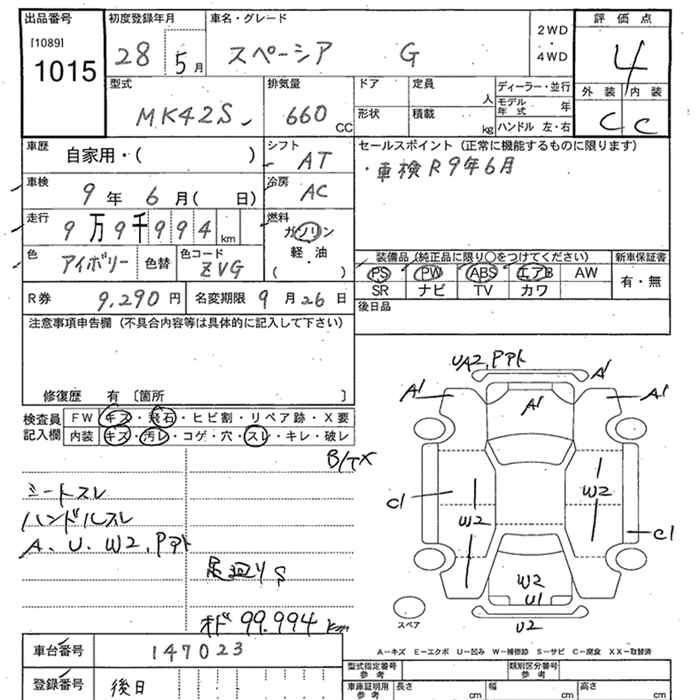 出品番号 初度登録年月 車名・グレード
[1089] 1015 28 5月 スペーシア G 2WD・4WD
評価点 4
外装 内装
C C
型式 排気量 ドア 定員 人 ディーラー・並行
MK42S 660 CC 形状 積載 kg モデル年式 年
ハンドル 左・右
車歴 自家用・( ) シフト AT
セールスポイント (正常に機能するものに限ります)
・車検R9年6月
車検 9年 6月( 日) 冷房 AC
走行 9万9千994km 燃料 ガソリン
軽・油
( )
色 アイボリー 色替 色コード ZVG
装備品 (純正品に限り○をつけてください) 新車保証書
PS PW ABS エアB AW 有・無
SR ナビ TV カワ
R券 9,290円 名変期限 9月26日
後日品
注意事項申告欄 (不具合内容等は具体的に記入して下さい)
修復歴 有 〔箇所 〕
検査員記入欄 FW キズ・飛石・ヒビ割・リペア跡・X要
内装 キズ・汚レ・コゲ・穴・スレ・キレ・破レ
B/TX
シートスレ
ハンドルスレ
A、U、W2、Pアト
足廻りS
オド 99.994km
UA2,Pアト
A1
A1 A1 A1
C1 W2 W2 C1
W2
U1
U2
スペア
A－キズ E－エクボ U－凹み W－補修跡 S－サビ C－腐食 XX－取替済
車台番号 147023
登録番号 後日
型式指定番号 参考 類別区分番号 参考
車庫証明用 参考 長さ cm 幅 cm 高さ cm